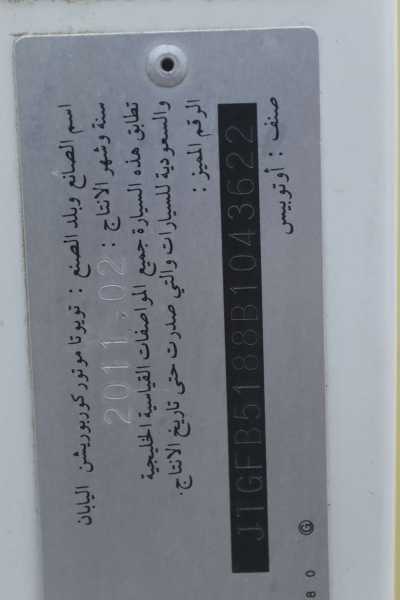 اسم الصانع وبلد الصنع : تويوتا موتور كوربوريشن اليابان
سنة وشهر الانتاج : 2011.02
تطابق هذه السيارة جميع المواصفات القياسية الخليجية
والسعودية للسيارات والتي صدرت حتى تاريخ الانتاج.
الرقم المميز :
JTGFB5188B1043622
صنف : أوتوبيس
80 G